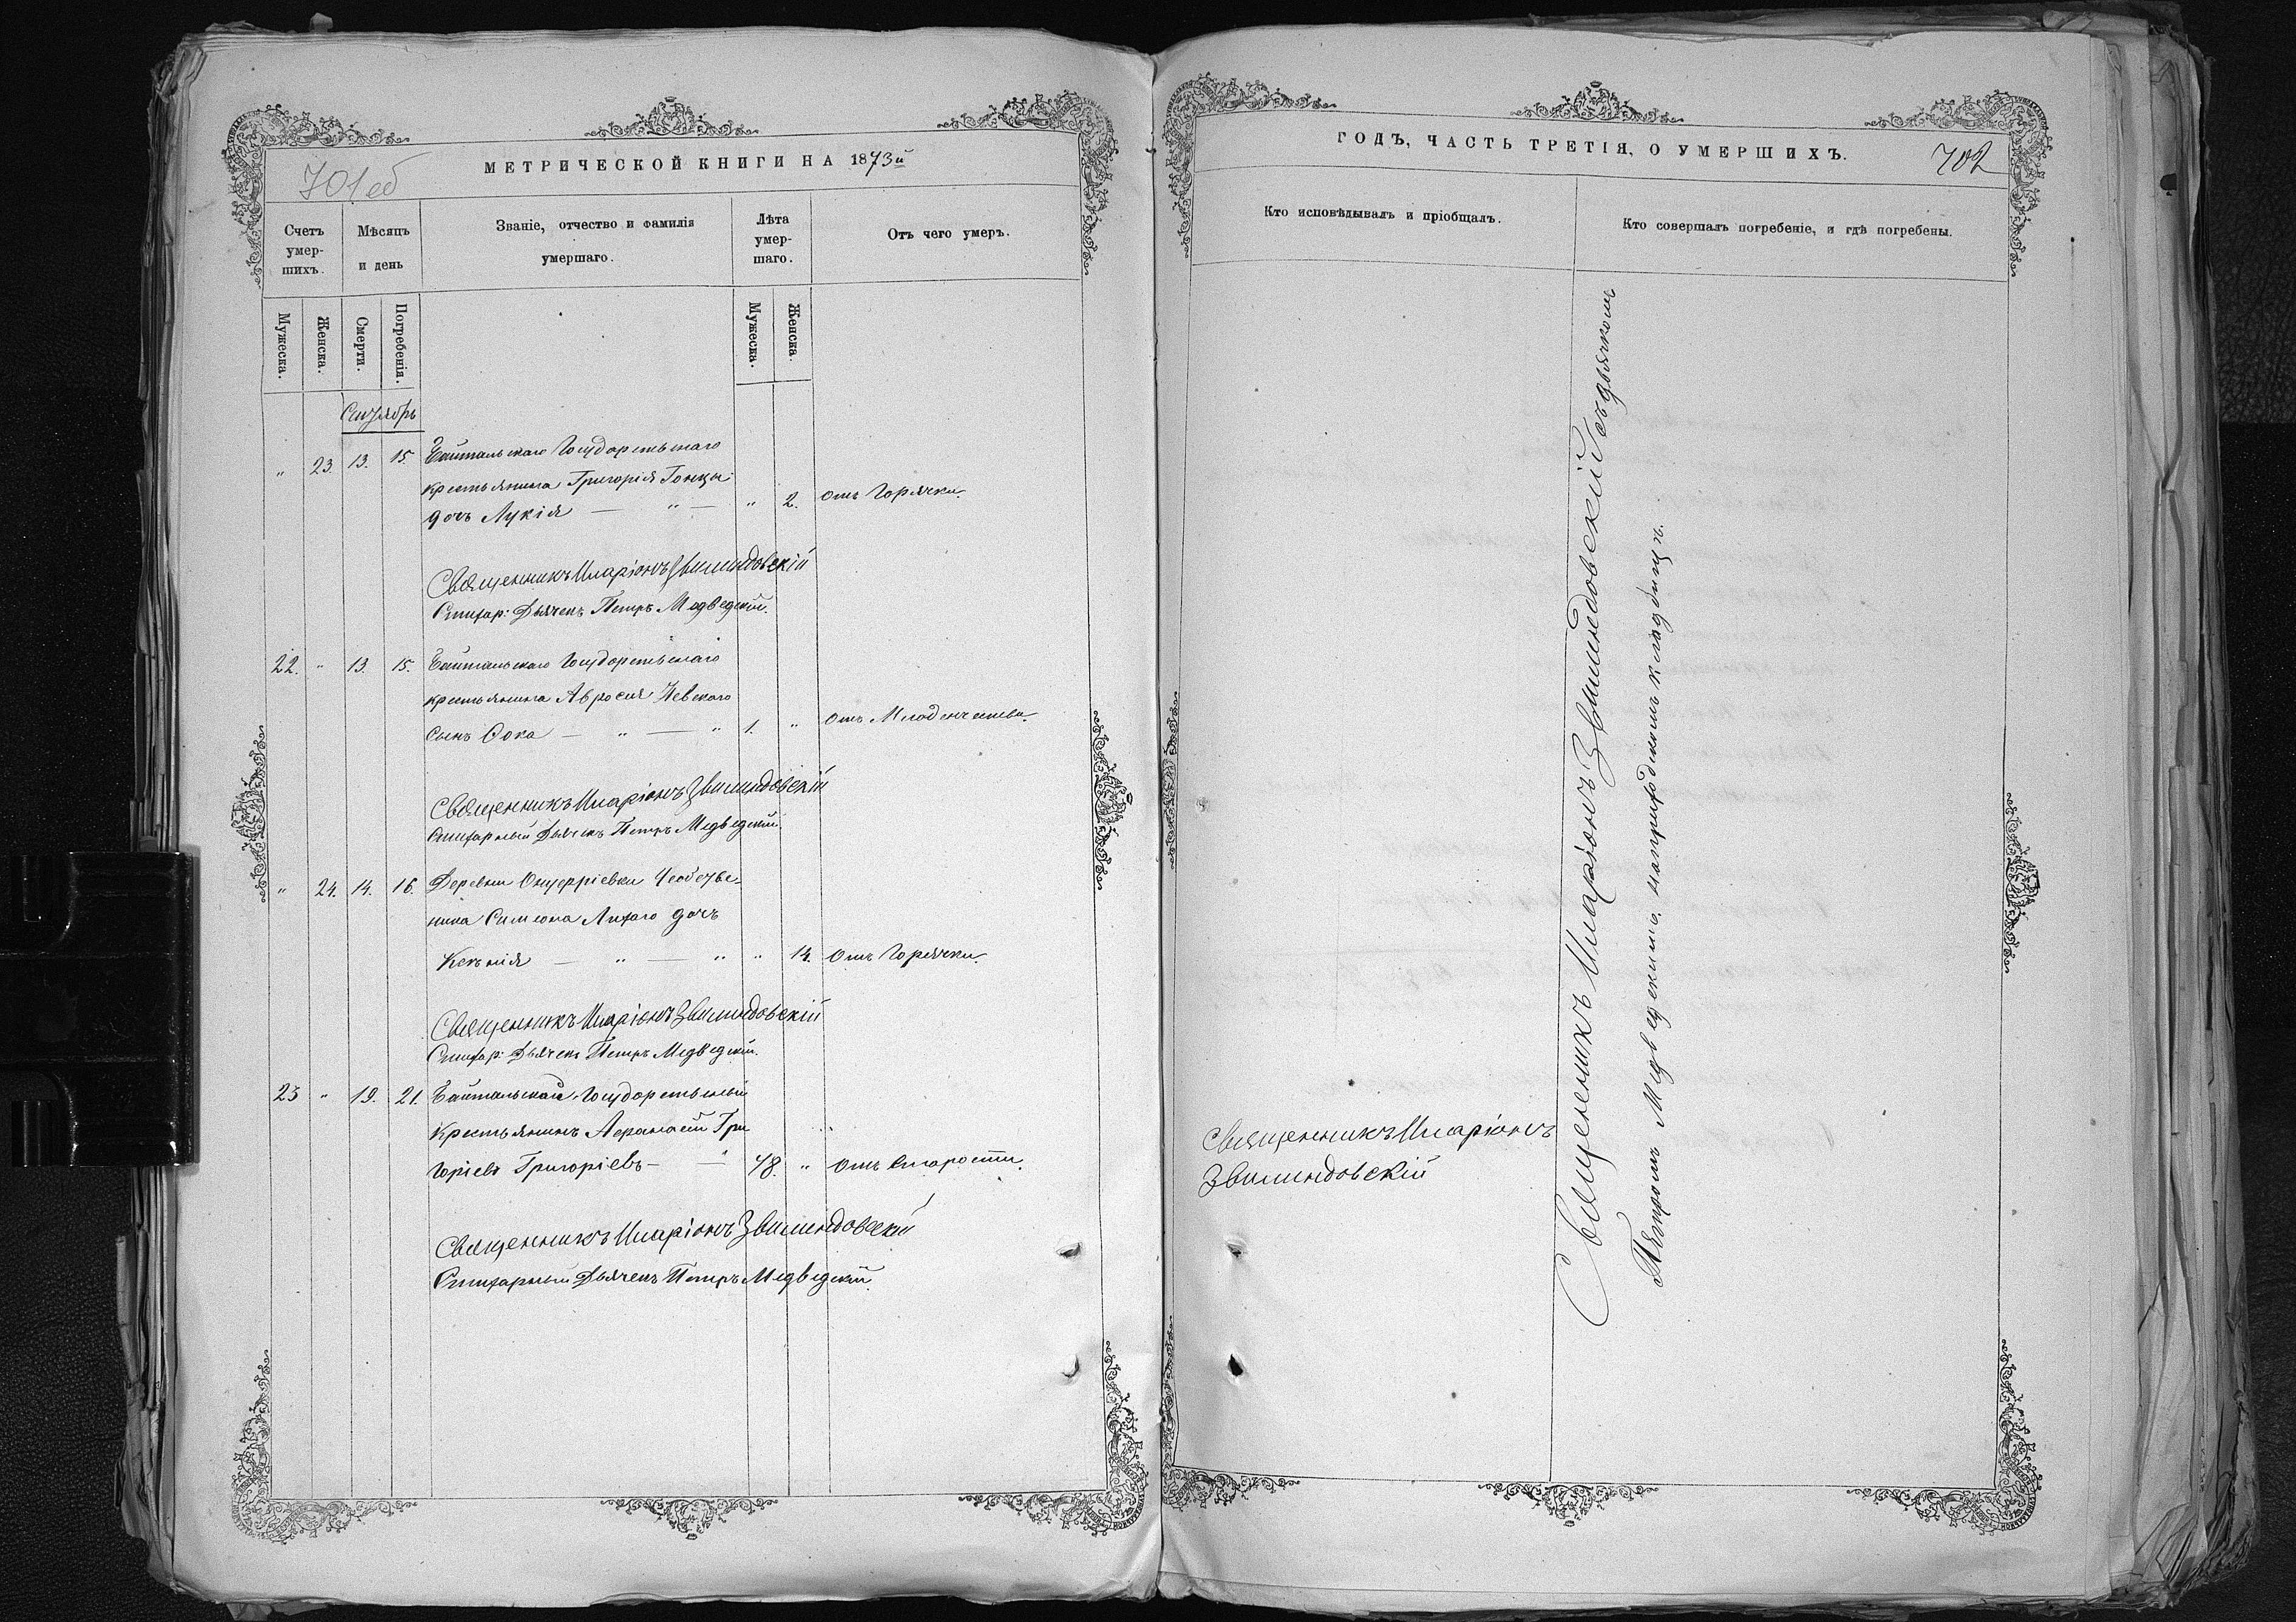 701об
МЕТРИЧЕСКОЙ КНИГИ НА 1873й
Счетъ умер-шихъ.
Мѣсяцъ и день
Званіе, отчество и фамилія умершаго.
Лѣта умер-шаго.
Отъ чего умеръ.
Мужеска.
Женска.
Смерти.
Погребенія.
Мужеска.
Женска.
Сентябрь
" 23. 13. 15. Байтальскаго Государствѣнаго
крестьянина Григорія Гонцы
дочъ Лукія — " — " 2. отъ Горячки.
Священникъ Иларіонъ Звминдовскій
Стихар: Дьячекъ Петръ Медведскій.
22. " 13. 15. Байтальскаго Государствѣнаго
крестьянина Авросия Невскаго
сынъ Фока — " — " 1. " отъ Младенчества.
Священникъ Иларіонъ
Стихарный Дьячекъ Петръ Медведскій
" 24. 14. 16. Деревни
Симеона Лихаго дочъ
Ксенія — " — " " 14. отъ Горячки.
Священникъ Иларіонъ
Стихар: Дьячекъ Петръ Медведскій.
23 " 19. 21. Байтальскій Государствѣный
Крестьянинъ Афанасій Гри
горіевъ Григоріевъ — — " 48. " отъ Старости.
Священникъ Иларіонъ
Стихарный Дьячекъ Петръ Медведскій.
ГОДЪ, ЧАСТЬ ТРЕТІЯ, О УМЕРШИХЪ.
702
Кто исповѣдывалъ и пріобщалъ.
Кто совершалъ погребеніе, и гдѣ погребены.
Священникъ Иларіонъ
Священникъ Иларіонъ съ дьячкомъ
Петромъ Медведскимъ на приходскомъ кладбищѣ.